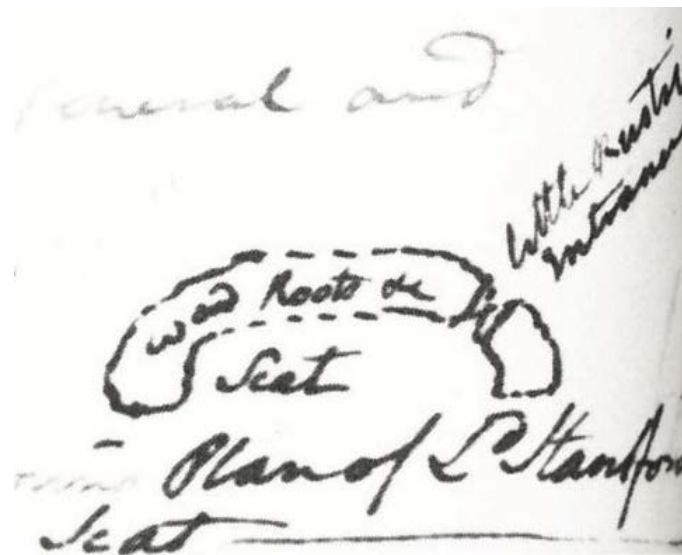 and
Little Rustic
Entrance
Wood Roots &c
Seat
Plan of Ld Stamford
Seat